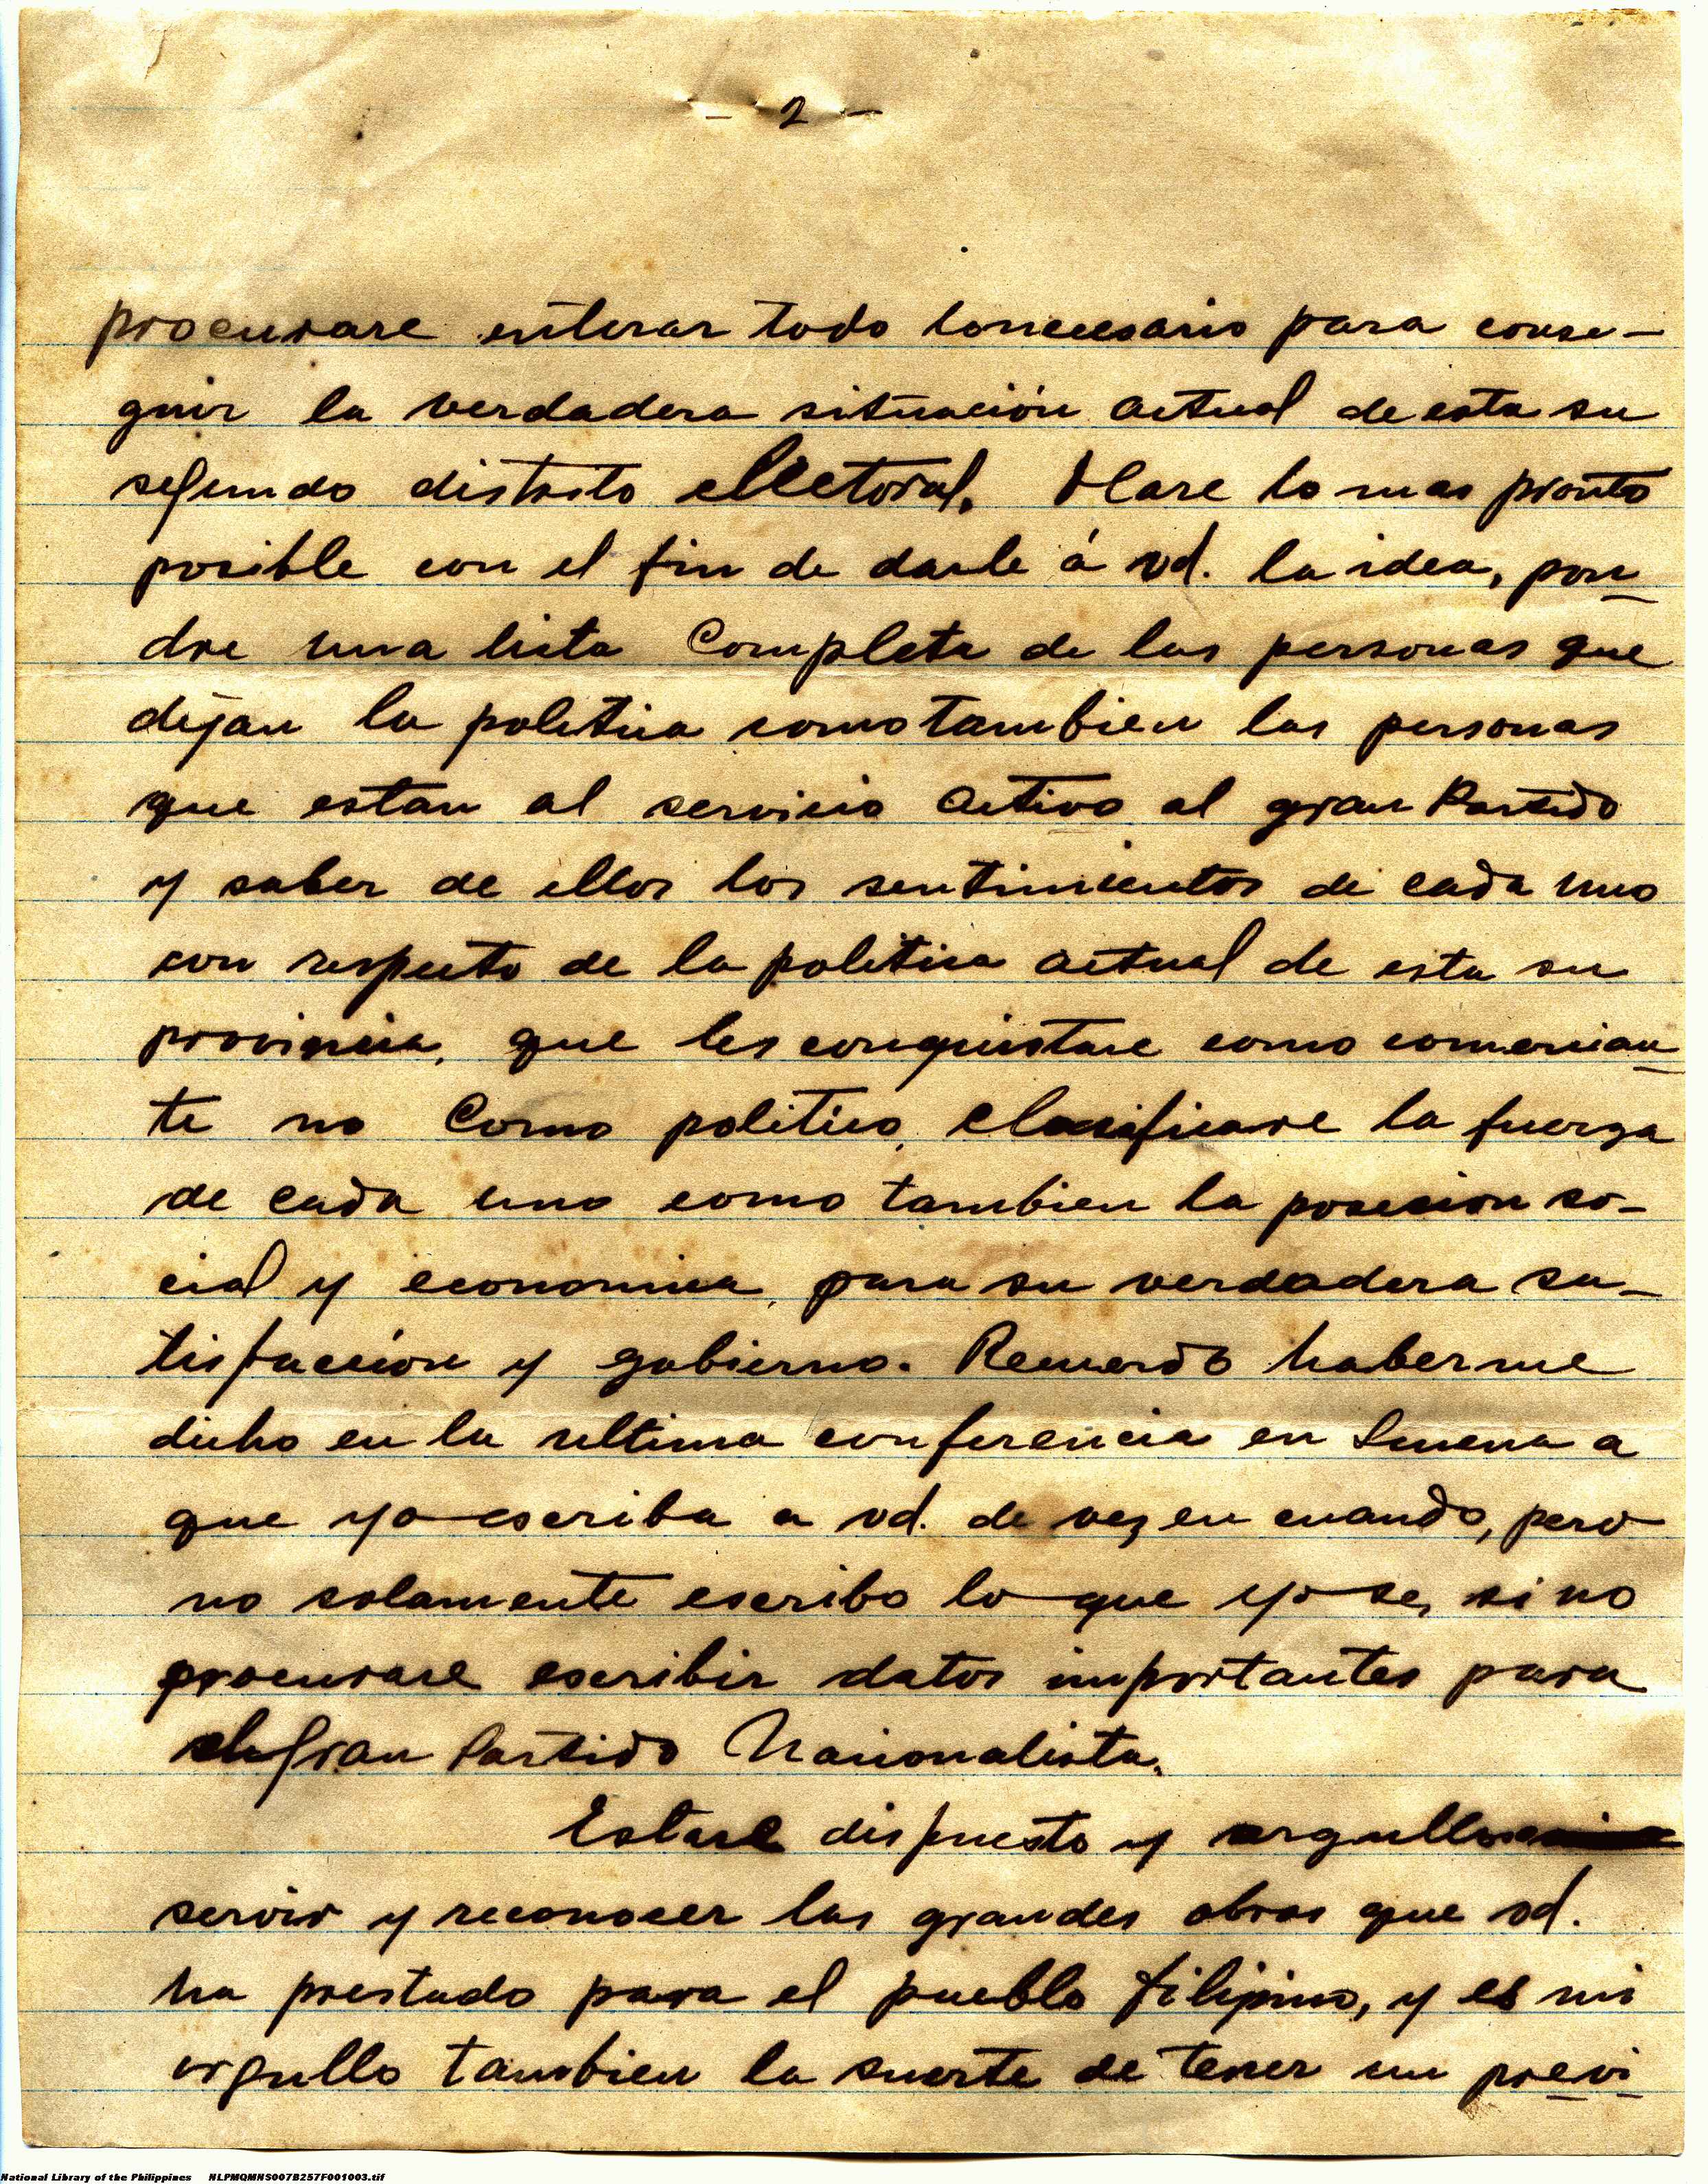 - 2 -
procurare enterar todo lo necesario para conse-
guir la verdadera situación actual de esta su
segundo distrito electoral. Hare lo mas pronto
posible con el fin de darle á vd. la idea, pon-
dre una lista Completa de las personas que
dejan la politica como tambien las personas
que estan al servicio activo al gran Partido
y saber de ellos los sentimientos de cada uno
con respecto de la politica actual de esta su
provincia, que les conquistare como comercian-
te no Como politico, clasificare la fuerza
de cada uno como tambien la posecion so-
cial y economica, para su verdadera sa-
tisfacción y gobierno. Recuerdo haberme
dicho en la ultima conferencia en Lucena a
que yo escriba a vd. de vez en cuando, pero
no solamente escribo lo que yo se, si no
procurare escribir datos importantes para
el gran Partido Nacionalista.
Estare dispuesto y orgulloso
servir y reconocer las grandes obras que vd.
ha prestado para el pueblo filipino, y es mi
orgullo tambien la suerte de tener un previ-
National Library of the Philippines NLPMQMNS007B257F001003.tif